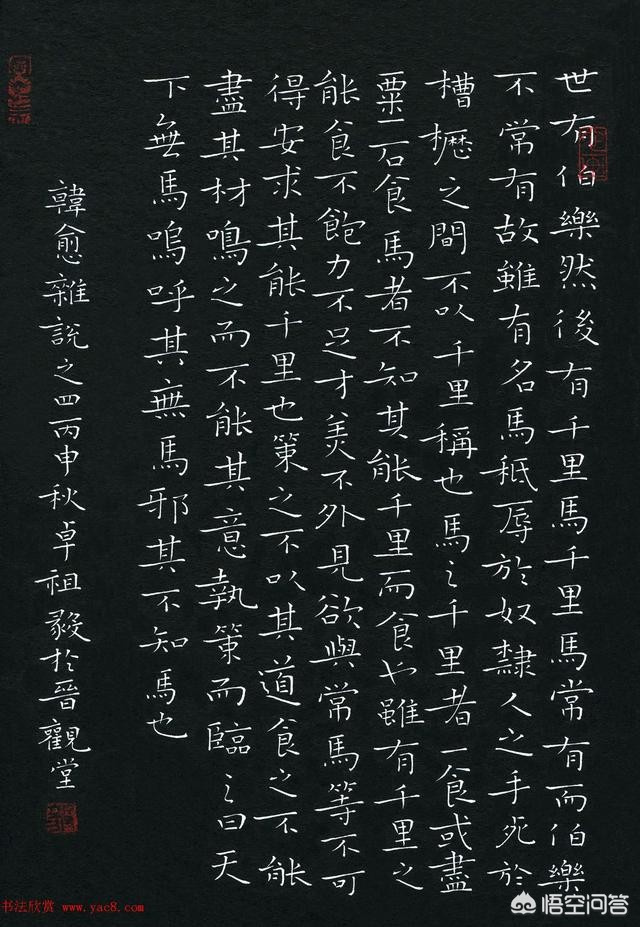 世有伯樂然後有千里馬千里馬常有而伯樂
不常有故雖有名馬秖辱於奴隸人之手死於
槽櫪之間不以千里稱也馬之千里者一食或盡
粟一石食馬者不知其能千里而食也雖有千里之
能食不飽力不足才美不外見欲與常馬等不可
得安求其能千里也策之不以其道食之不能
盡其材鳴之而不能其意執策而臨之曰天
下無馬嗚呼其無馬邪其不知馬也
韓愈雜說之四丙申秋卓祖毅於晉觀堂
书法欣赏 www.yac8.com
悟空问答